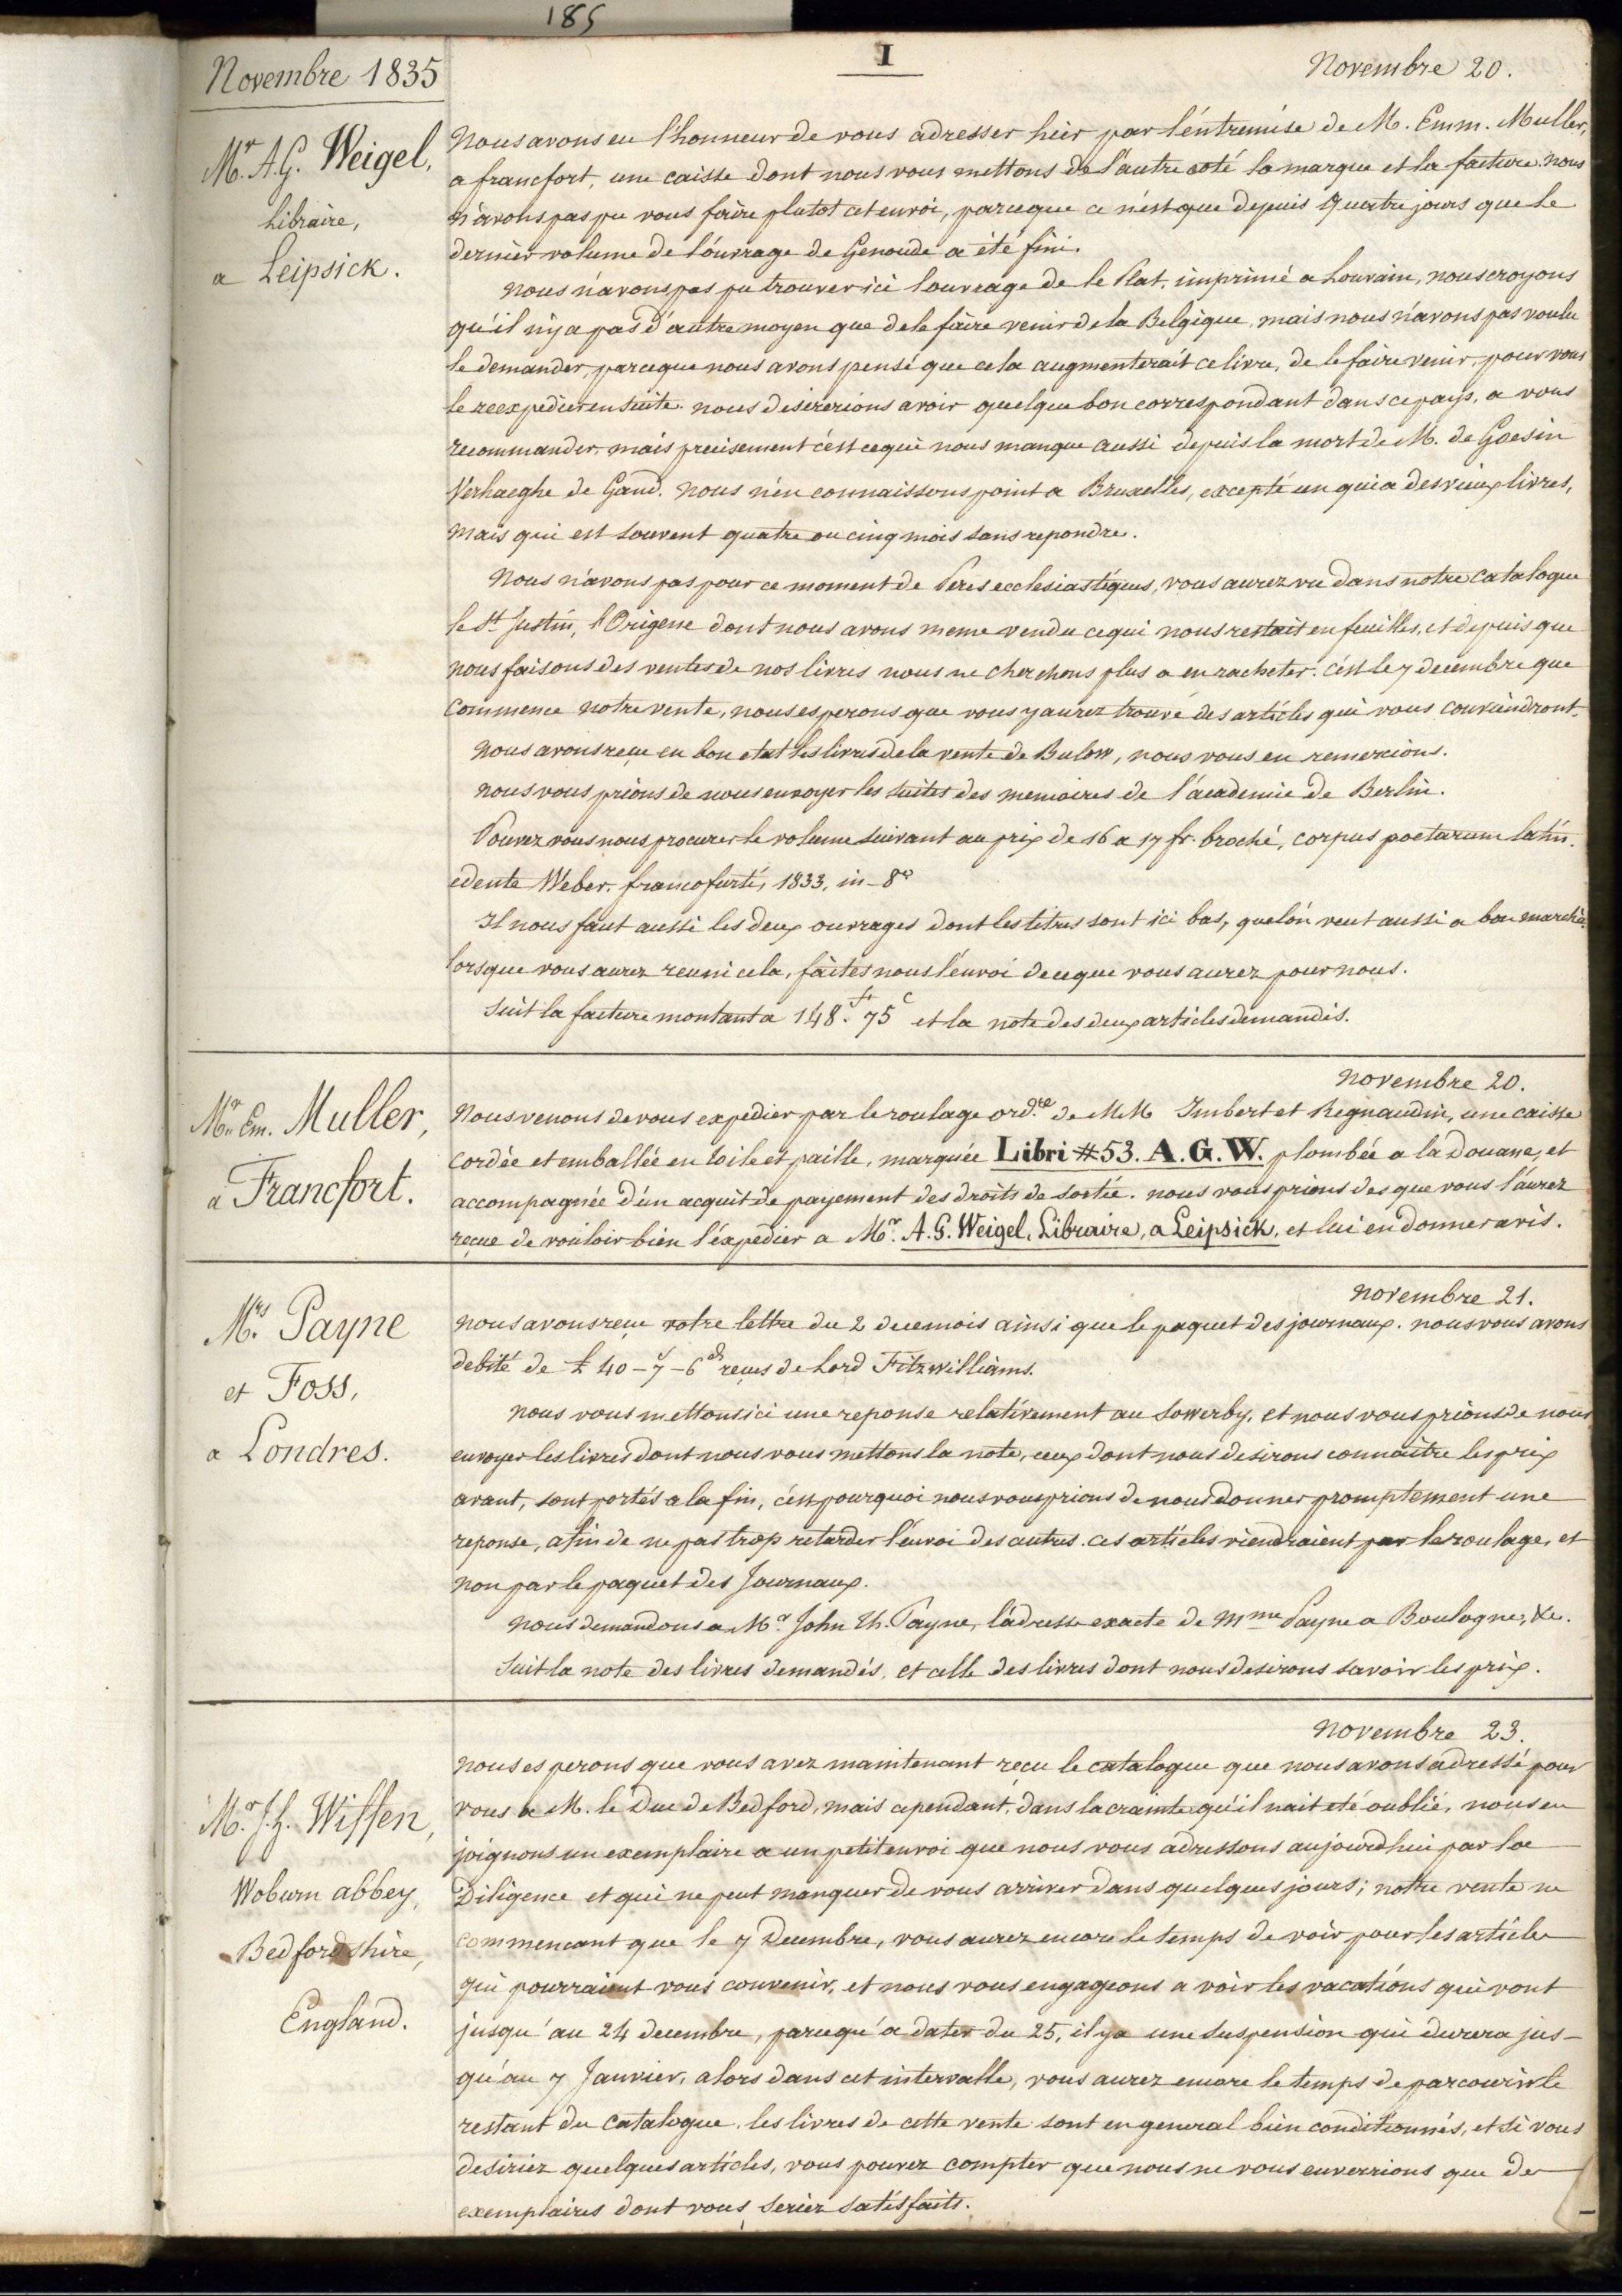 185
I
Novembre 1835
Novembre 20.
Mr. A.G. Weigel,
Libraire,
a Leipsick.
Nous avons eu l'honneur de vous adresser hier par l'entremise de M. Emm. Muller,
a francfort, une caisse dont nous vous mettons de l'autre coté la marque et la facture. nous
n'avons pas pu vous faire plutot cet envoi, parceque ce n'est que depuis quatre jours que le
dernier volume de l'ouvrage de Genoude a été fini.
nous n'avons pas pu trouver ici l'ouvrage de le Plat, imprimé a Louvain, nous croyons
qu'il n'y a pas d'autre moyen que de le faire venir de la Belgique, mais nous n'avons pas voulu
le demander, parceque nous avons pensé que cela augmenterait ce livre, de le faire venir, pour vous
le reexpedier ensuite. nous desirerions avoir quelque bon correspondant dans ce pays, a vous
recommander, mais precisement c'est ce qui nous manque aussi depuis la mort de M. de Goesin
Verhaeghe de Gand. nous n'en connaissons point a Bruxelles, excepté un qui a des vieux livres,
mais qui est souvent quatre ou cinq mois sans repondre.
Nous n'avons pas pour ce moment de Peres ecclesiastiques, vous aurez vu dans notre catalogue
le St Justin, l'Origene dont nous avons meme vendu ce qui nous restait en feuilles, et depuis que
nous faisons des ventes de nos livres nous ne cherchons plus a en racheter. c'est le 7 decembre que
commence notre vente, nous esperons que vous y aurez trouvé des articles qui vous conviendront.
nous avons reçu en bon etat les livres de la vente de Bulow, nous vous en remercions.
nous vous prions de nous envoyer les suites des memoires de l'academie de Berlin.
Pouvez vous nous procurer le volume suivant au prix de 16 a 17 fr. broché, corpus poetarum latin.
edente Weber. francofurti, 1833, in-8°
Il nous faut aussi les deux ouvrages dont les titres sont ici bas, que l'on veut aussi a bon marché.
lorsque vous aurez reuni cela, faites nous l'envoi de ce que vous aurez pour nous.
Suit la facture montant a 148.fr 75c et la note des deux articles demandés.
novembre 20.
Mr. Em. Muller,
a Francfort.
Nous venons de vous expedier par le roulage ord.re de MM Imbert et Regnaudin, une caisse
cordée et emballée en toile et paille, marquée Libri #53. A.G.W. plombée a la Douane, et
accompagnée d'un acquit de payement des droits de sortie. nous vous prions des que vous l'aurez
reçue de vouloir bien l'expedier a Mr. A.G. Weigel, Libraire, a Leipsick, et lui en donner avis.
novembre 21.
Mrs. Payne
et Foss,
a Londres.
nous avons reçu votre lettre du 2 de ce mois ainsi que le paquet des journaux. nous vous avons
debité de £ 40-7s-6d reçus de Lord Fitzwilliams.
nous vous mettons ici une reponse relativement au Sowerby, et nous vous prions de nous
envoyer les livres dont nous vous mettons la note, ceux dont nous desirons connaitre les prix
avant, sont portés a la fin, c'est pourquoi nous vous prions de nous donner promptement une
reponse, afin de ne pas trop retarder l'envoi des autres. ces articles viendraient par le roulage, et
non par le paquet des Journaux.
nous demandons a Mr. John Th. Payne, l'adresse exacte de Mme Payne a Boulogne, &c.
Suit la note des livres demandés, et celle des livres dont nous desirons savoir les prix.
novembre 23.
Mr. J.H. Wiffen,
Woburn abbey,
Bedfordshire,
England.
nous esperons que vous avez maintenant reçu le catalogue que nous avons adressé pour
vous a M. le Duc de Bedford, mais cependant, dans la crainte qu'il n'ait eté oublié, nous en
joignons un exemplaire a un petit envoi que nous vous adressons aujourdhui par la
Diligence et qui ne peut manquer de vous arriver dans quelques jours; notre vente ne
commencant que le 7 Decembre, vous aurez encore le temps de voir pour les articles
qui pourraient vous convenir, et nous vous engageons a voir les vacations qui vont
jusqu'au 24 decembre, parcequ'a dater du 25, il y a une suspension qui durera jus-
qu'au 7 Janvier, alors dans cet intervalle, vous aurez encore le temps de parcourir le
restant du catalogue. les livres de cette vente sont en general bien conditionnés, et si vous
desiriez quelques articles, vous pouvez compter que nous ne vous enverrions que des
exemplaires dont vous seriez satisfaits.